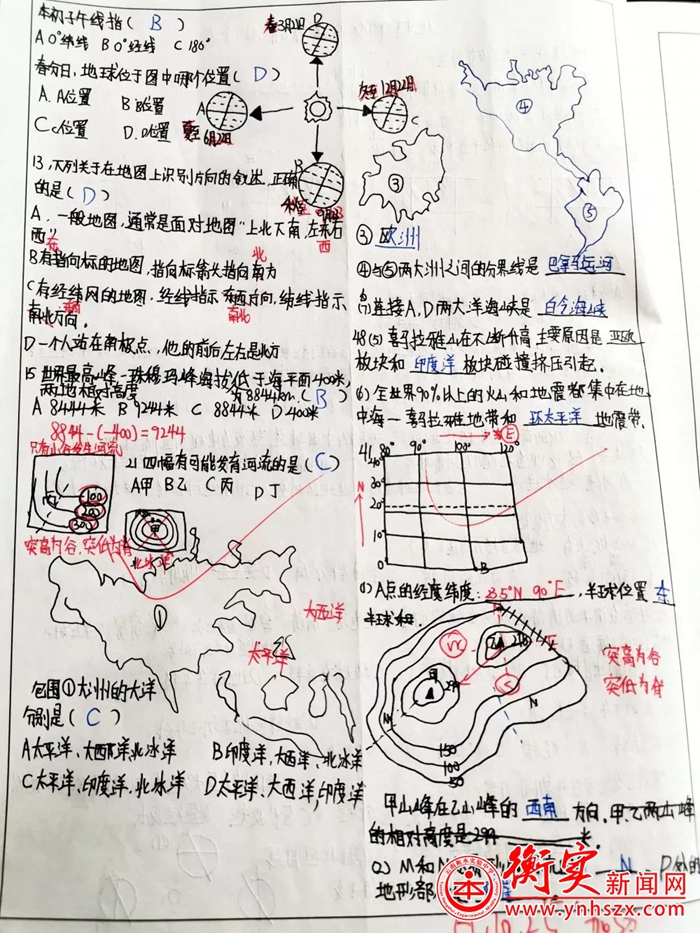 本初子午线指( B )
A 0°纬线 B 0°经线 C 180°
春分日,地球位于图中哪个位置( D )
A. A位置 B B位置
C C位置 D. D位置
春3月21日
D
A
夏至6月22日
冬至12月22日
C
B
13、下列关于在地图上识别方向的叙述,正确
的是( D )
A. 一般地图,通常是面对地图"上北下南,左东右
西"
东
北
西
B有指向标的地图,指向标箭头指向南方
C有经纬网的地图,经线指示东西方向,纬线指示
南北方向。
南北
D一个人站在南极点,他的前后左右是北方
15 世界最高峰-珠穆玛峰海拔低于海平面400米,
两地相对高度
为8844m.( B )
A 8444米 B 9244米 C 8844米 D 400米
8844-(-400)=9244
21 四幅有可能发育河流的是( C )
A甲 B乙 C丙 D丁
丙
100
200
300
甲
突高为谷,突低为脊
北冰洋
①
大西洋
太平洋
包围①大洲的大洋
分别是( C )
A太平洋、大西洋、北冰洋 B印度洋、大西洋、北冰洋
C太平洋、印度洋、北冰洋 D太平洋、大西洋,印度洋
④
⑤
③
③ 欧洲
④与⑤两大洲之间的分界线是 巴拿马运河
(7)连接A,D两大洋海峡是 白令海峡
48(5)喜马拉雅山在不断升高主要原因是亚欧
板块和 印度洋 板块碰撞挤压引起。
(6)全世界90%以上的火山和地震都集中在地
中海-喜马拉雅地带和 环太平洋 地震带。
东(E)
41.
80° 100° 120°
40°
30
20
10
0
N
B
(1)A点的经度纬度: 23.5°N 90°E ,半球位置 东
半球和
突高为谷
突低为脊
N
甲山峰在乙山峰的 西南 方向,甲、乙两山峰
的相对高度是299 米
(2) M和N N P处的
地形部
衡实新闻网
www.ynhszx.com